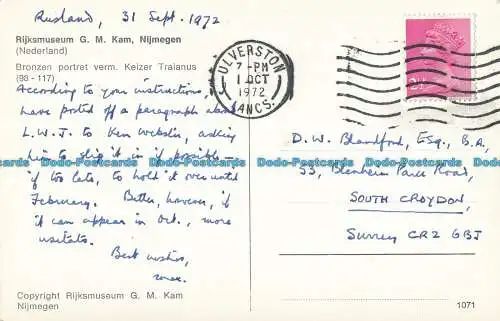 Rusland, 31 Sept. 1972
Rijksmuseum G. M. Kam, Nijmegen
(Nederland)
Bronzen portret verm. Keizer Traianus
(98 - 117)
According to your instructions,
have posted off a paragraph about
L.W.J. to Ken Webslin, asking
him to slip it in if possible
if too late, to hold it over until
February. Better, however, if
it can appear in Oct., more
Best wishes,
Copyright Rijksmuseum G. M. Kam
Nijmegen
ULVERSTON
7 - PM
1 OCT
1972
LANCS.
2½
D. W. Blandford, Esq., B.A.,
53, Blenheim Park Road,
SOUTH CROYDON,
Surrey CR2 6BJ
1071
Postcards Postcards Postcards Postcards Postcards